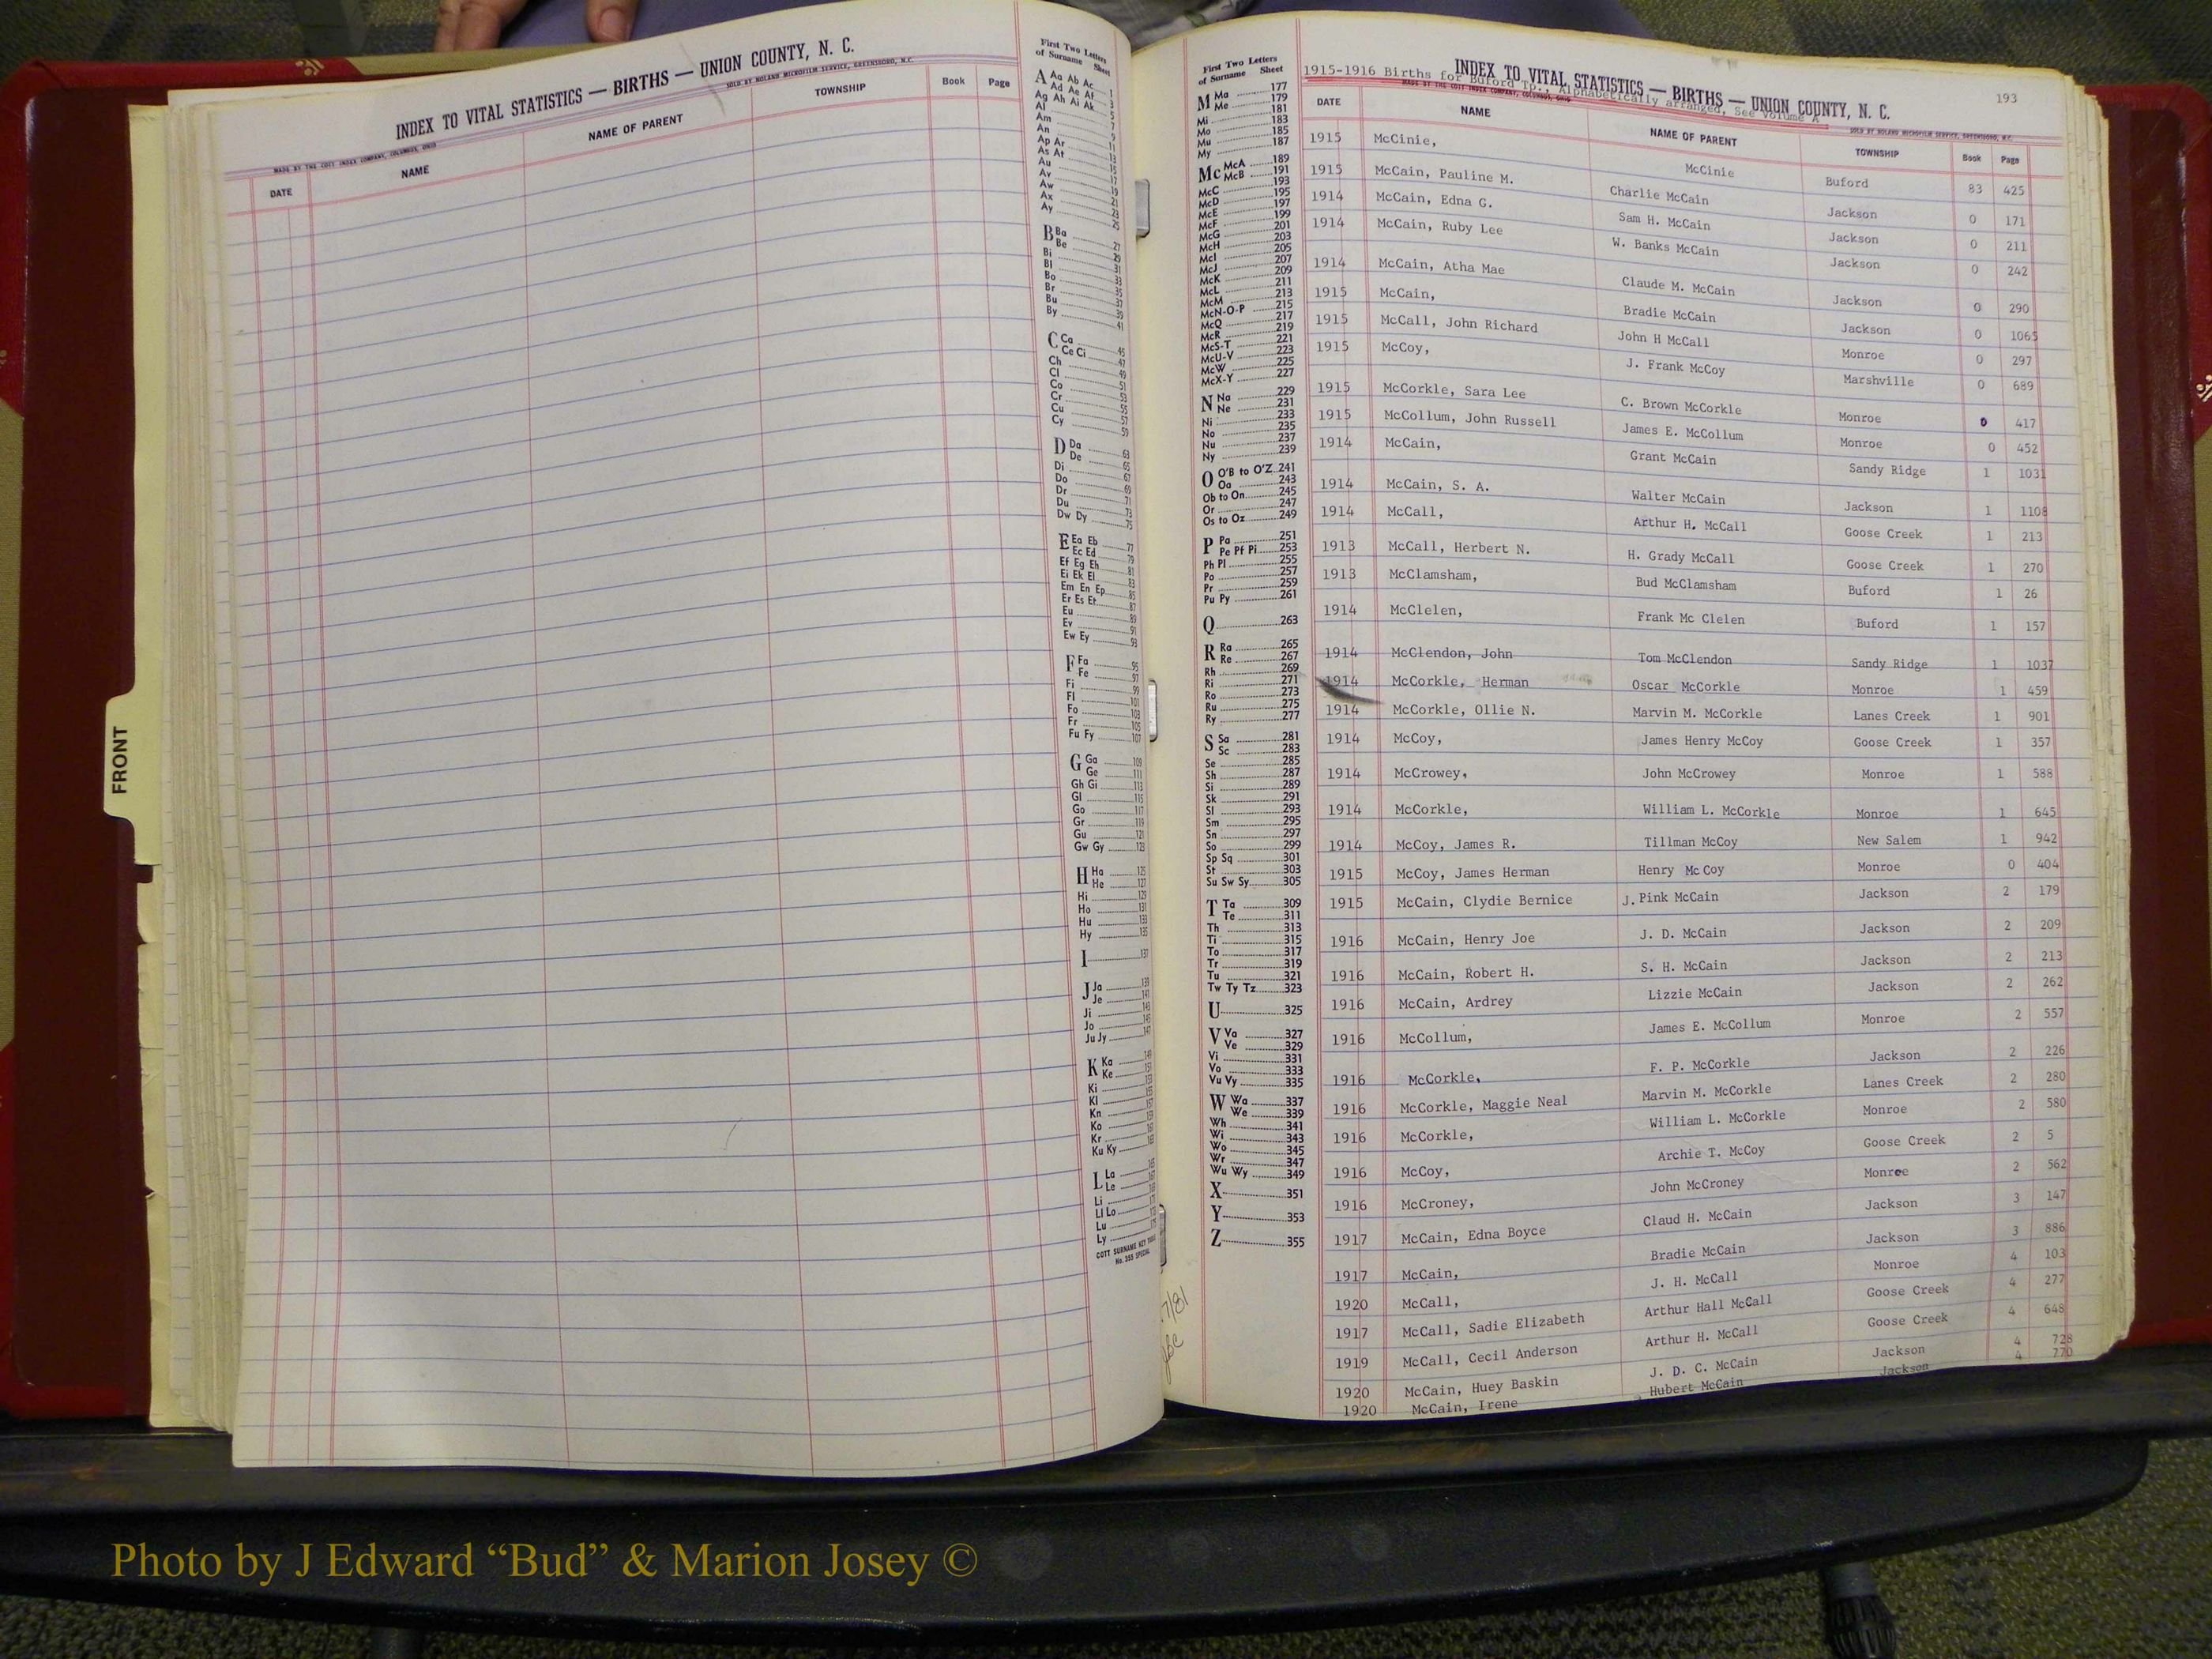 INDEX TO VITAL STATISTICS — BIRTHS — UNION COUNTY, N. C.
MADE BY THE COTT INDEX COMPANY, COLUMBUS, OHIO
SOLD BY ROLAND MICROFILM SERVICE, GREENSBORO, N.C.
DATE NAME NAME OF PARENT TOWNSHIP Book Page
First Two Letters
of Surname Sheet
A Aa Ab Ac 1
Ad Ae Af 3
Ag Ah Ai Ak 5
Al 7
Am 9
An 11
Ap Ar 13
As At 15
Au 17
Av 19
Aw 21
Ax 23
Ay 25
B Ba 27
Be 29
Bi 31
Bl 33
Bo 35
Br 37
Bu 39
By 41
C Ca 45
Ce Ci 47
Ch 49
Cl 51
Co 53
Cr 55
Cu 57
Cy 59
D Da 63
De 65
Di 67
Do 69
Dr 71
Du 73
Dw Dy 75
E Ea Eb 77
Ec Ed 79
Ef Eg Eh 81
Ei Ek El 83
Em En Ep 85
Er Es Et 87
Eu 89
Ev 91
Ew Ey 93
F Fa 95
Fe 97
Fi 99
Fl 101
Fo 103
Fr 105
Fu Fy 107
G Ga 109
Ge 111
Gh Gi 113
Gl 115
Go 117
Gr 119
Gu 121
Gw Gy 123
H Ha 125
He 127
Hi 129
Ho 131
Hu 133
Hy 135
I 137
J Ja 139
Je 141
Ji 143
Jo 145
Ju Jy 147
K Ka 149
Ke
Ki
Kl
Kn
Ko
Kr
Ku Ky
L La
Le
Li
Ll Lo
Lu
Ly
COTT SURNAME KEY TABLE
No. 355 SPECIAL
FRONT
First Two Letters
of Surname Sheet
M Ma 177
Me 179
Mi 181
Mo 183
Mu 185
My 187
Mc McA 189
McB 191
McC 193
McD 195
McE 197
McF 199
McG 201
McH 203
McI 205
McJ 207
McK 209
McL 211
McM 213
McN-O-P 215
McQ 217
McR 219
McS-T 221
McU-V 223
McW 225
McX-Y 227
N Na 229
Ne 231
Ni 233
No 235
Nu 237
Ny 239
O O'B to O'Z 241
Oa 243
Ob to On 245
Or 247
Os to Oz 249
P Pa 251
Pe Pf Pi 253
Ph Pl 255
Po 257
Pr 259
Pu Py 261
Q 263
R Ra 265
Re 267
Rh 269
Ri 271
Ro 273
Ru 275
Ry 277
S Sa 281
Sc 283
Se 285
Sh 287
Si 289
Sk 291
Sl 293
Sm 295
Sn 297
So 299
Sp Sq 301
St 303
Su Sw Sy 305
T Ta 309
Te 311
Th 313
Ti 315
To 317
Tr 319
Tu 321
Tw Ty Tz 323
U 325
V Va 327
Ve 329
Vi 331
Vo 333
Vu Vy 335
W Wa 337
We 339
Wh 341
Wi 343
Wo 345
Wr 347
Wu Wy 349
X 351
Y 353
Z 355
7/81
193
INDEX TO VITAL STATISTICS — BIRTHS — UNION COUNTY, N. C.
1915-1916 Births for Buford Tp., Alphabetically arranged, see Volume A
MADE BY THE COTT INDEX COMPANY, COLUMBUS, OHIO
SOLD BY ROLAND MICROFILM SERVICE, GREENSBORO, N.C.
DATE NAME NAME OF PARENT TOWNSHIP Book Page
1915 McCinie, McCinie Buford 83 425
1915 McCain, Pauline M. Charlie McCain Jackson 0 171
1914 McCain, Edna G. Sam H. McCain Jackson 0 211
1914 McCain, Ruby Lee W. Banks McCain Jackson 0 242
1914 McCain, Atha Mae Claude M. McCain Jackson 0 290
1915 McCain, Bradie McCain Jackson 0 1065
1915 McCall, John Richard John H McCall Monroe 0 297
1915 McCoy, J. Frank McCoy Marshville 0 689
1915 McCorkle, Sara Lee C. Brown McCorkle Monroe 0 417
1915 McCollum, John Russell James E. McCollum Monroe 0 452
1914 McCain, Grant McCain Sandy Ridge 1 1031
1914 McCain, S. A. Walter McCain Jackson 1 1108
1914 McCall, Arthur H. McCall Goose Creek 1 213
1913 McCall, Herbert N. H. Grady McCall Goose Creek 1 270
1913 McClamsham, Bud McClamsham Buford 1 26
1914 McClelen, Frank Mc Clelen Buford 1 157
1914 McClendon, John Tom McClendon Sandy Ridge 1 1037
1914 McCorkle, Herman Oscar McCorkle Monroe 1 459
1914 McCorkle, Ollie N. Marvin M. McCorkle Lanes Creek 1 901
1914 McCoy, James Henry McCoy Goose Creek 1 357
1914 McCrowey, John McCrowey Monroe 1 588
1914 McCorkle, William L. McCorkle Monroe 1 645
1914 McCoy, James R. Tillman McCoy New Salem 1 942
1915 McCoy, James Herman Henry Mc Coy Monroe 0 404
1915 McCain, Clydie Bernice J. Pink McCain Jackson 2 179
1916 McCain, Henry Joe J. D. McCain Jackson 2 209
1916 McCain, Robert H. S. H. McCain Jackson 2 213
1916 McCain, Ardrey Lizzie McCain Jackson 2 262
1916 McCollum, James E. McCollum Monroe 2 557
1916 McCorkle, F. P. McCorkle Jackson 2 226
1916 McCorkle, Maggie Neal Marvin M. McCorkle Lanes Creek 2 280
1916 McCorkle, William L. McCorkle Monroe 2 580
1916 McCoy, Archie T. McCoy Goose Creek 2 5
1916 McCroney, John McCroney Monroe 2 562
1917 McCain, Edna Boyce Claud H. McCain Jackson 3 147
1917 McCain, Bradie McCain Jackson 3 886
1920 McCall, J. H. McCall Monroe 4 103
1917 McCall, Sadie Elizabeth Arthur Hall McCall Goose Creek 4 277
1919 McCall, Cecil Anderson Arthur H. McCall Goose Creek 4 648
1920 McCain, Huey Baskin J. D. C. McCain Jackson 4 728
1920 McCain, Irene Hubert McCain Jackson 4 770
Photo by J Edward “Bud” & Marion Josey ©